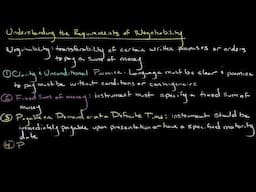 Understanding the Requirements of Negotiability
Negotiability: transferability of certain written promises or orders
to pay a sum of money
① Clarity & Unconditional Promise: Language must be clear & promise
to pay must be without conditions or contingencies
② Fixed Sum of money: instrument must specify a fixed sum of
money
③ Payable on Demand or at a Definite Time: instrument should be
immediately payable upon presentation or have a specified maturity
date
④ P